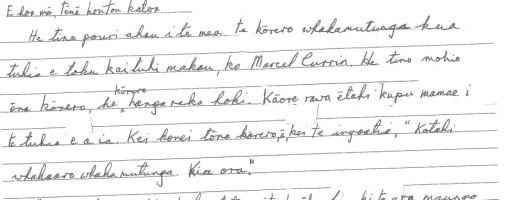 E hoa mā, tēnā koutou katoa.
He tino pouri ahau i te mea te kōrero whakamutunga kua
tuhia e toku kaituhi makau, ko Marcel Currin. He tino mohio
kōrero
ōna kōrero, he hangareka hoki. Kāore rawa ētahi kupu mamae i
te tuhia e a ia. Kei konei tōna kōrero, ā, kei te ingoatia, "Kotahi
whakaaro whakamutunga. Kia ora."